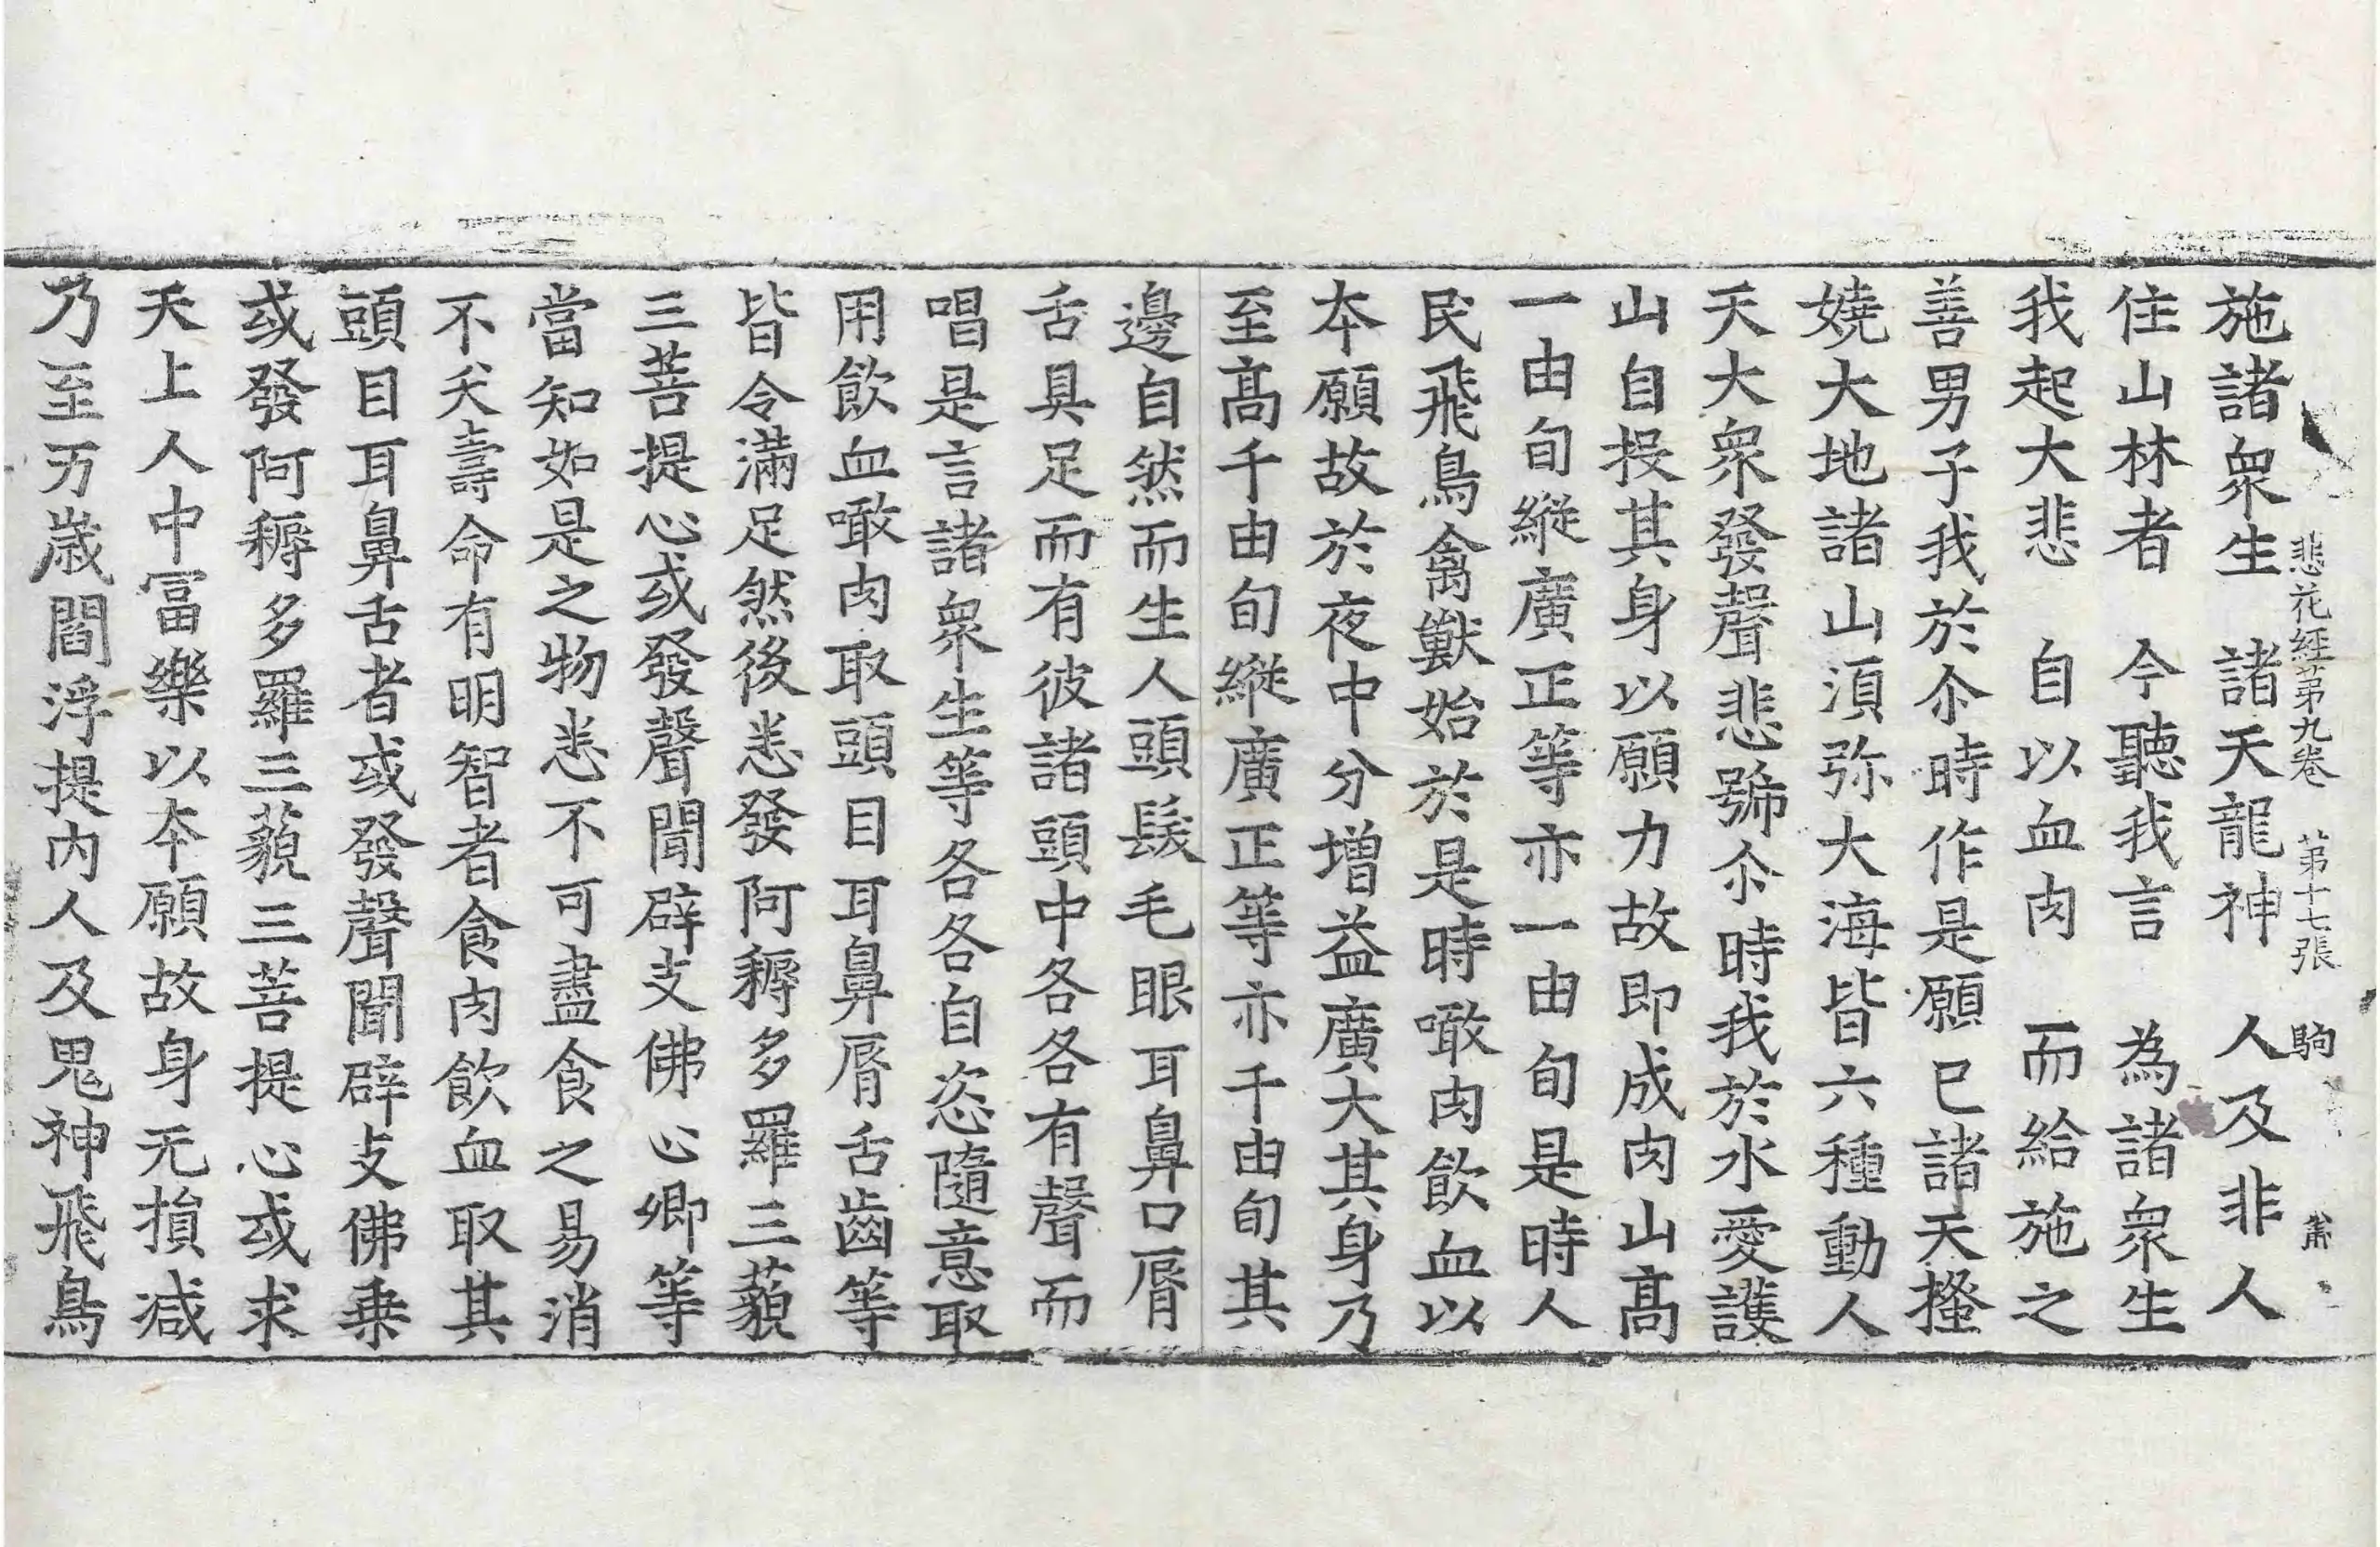 悲花經第九卷　第十七張　駒
施諸衆生　諸天龍神　人及非人
住山林者　今聽我言　為諸衆生
我起大悲　自以血肉　而給施之
善男子我於尒時作是願已諸天搔
嬈大地諸山湏弥大海皆六種動人
天大衆發聲悲號尒時我於水愛護
山自投其身以願力故即成肉山髙
一由旬縱廣正等亦一由旬是時人
民飛鳥禽獸始於是時噉肉飲血以
本願故於夜中分增益廣大其身乃
至髙千由旬縱廣正等亦千由旬其
邊自然而生人頭髮毛眼耳鼻口脣
舌具足而有彼諸頭中各各有聲而
唱是言諸衆生等各各自恣隨意取
用飲血噉肉取頭目耳鼻脣舌齒等
皆令滿足然後悉發阿耨多羅三藐
三菩提心或發聲聞辟支佛心卿等
當知如是之物悉不可盡食之易消
不夭壽命有明智者食肉飲血取其
頭目耳鼻舌者或發聲聞辟支佛乗
或發阿耨多羅三藐三菩提心或求
天上人中冨樂以本願故身无損减
乃至万歳閻浮提内人及鬼神飛鳥